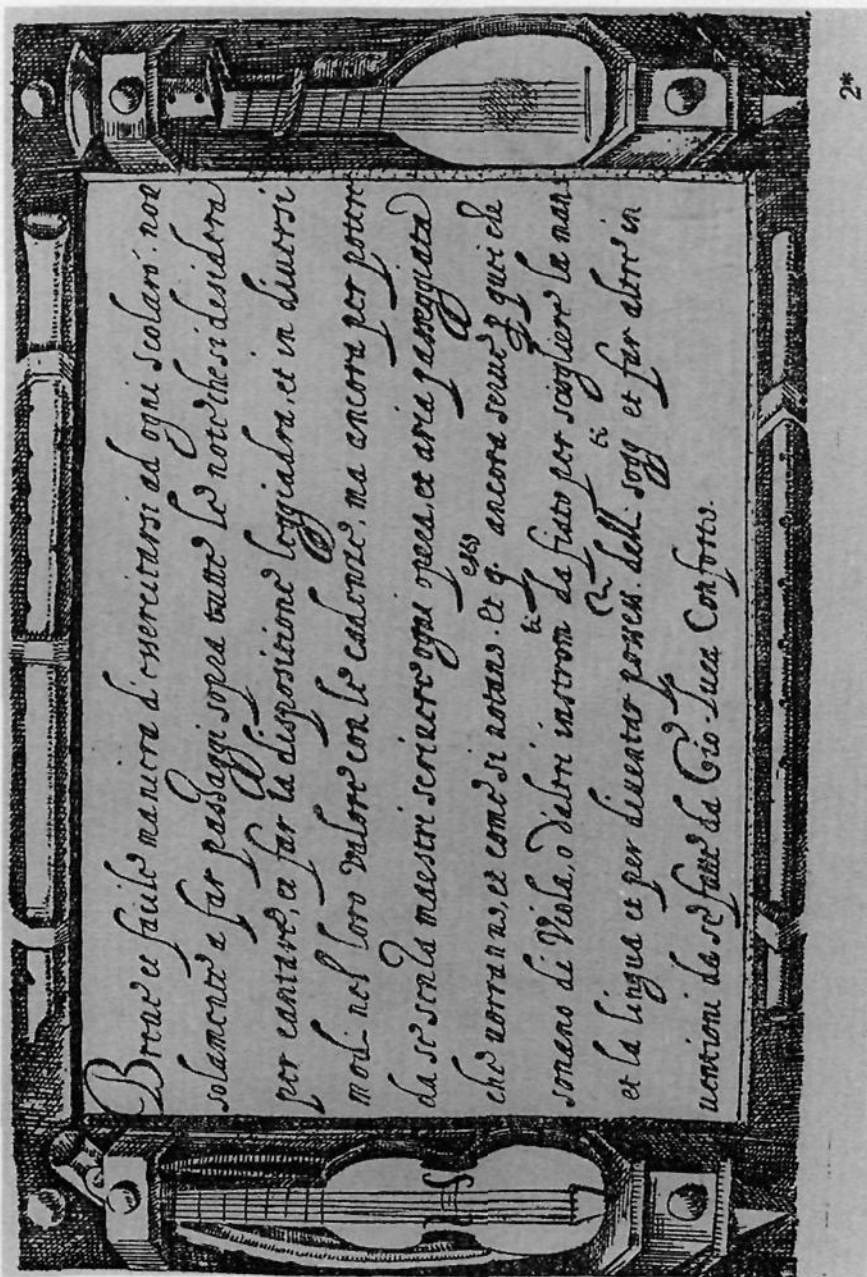 Breue et facile maniera d'essercitarsi ad ogni scolaro, non
solamente a far passaggi sopra tutte le note che si desidera
per cantare, et far la dispositione leggiadra, et in diuersi
modi nel loro valore con le cadenze, ma ancora per potere
da se senza maestri scriuere ogni opera, et aria passeggiata
che uorranno, et come si notano. Et q.esto ancora serue p quei che
sonano di Viola, o d'altri instrom.ti da fiato per sciogliere la mano
et la lingua et per diuentar possess.ri delli sogg.ti et far altre in
uentioni da se fatte da Gio. Luca Conforto.
2*